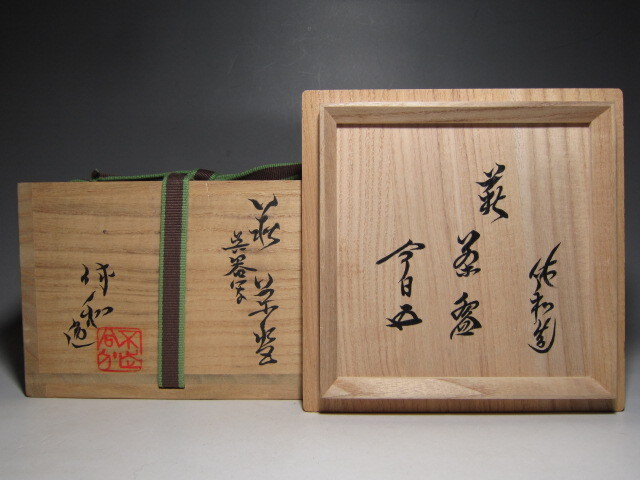 萩 茶盌
呉器写
休和造
休和造
萩 茶盌
今日